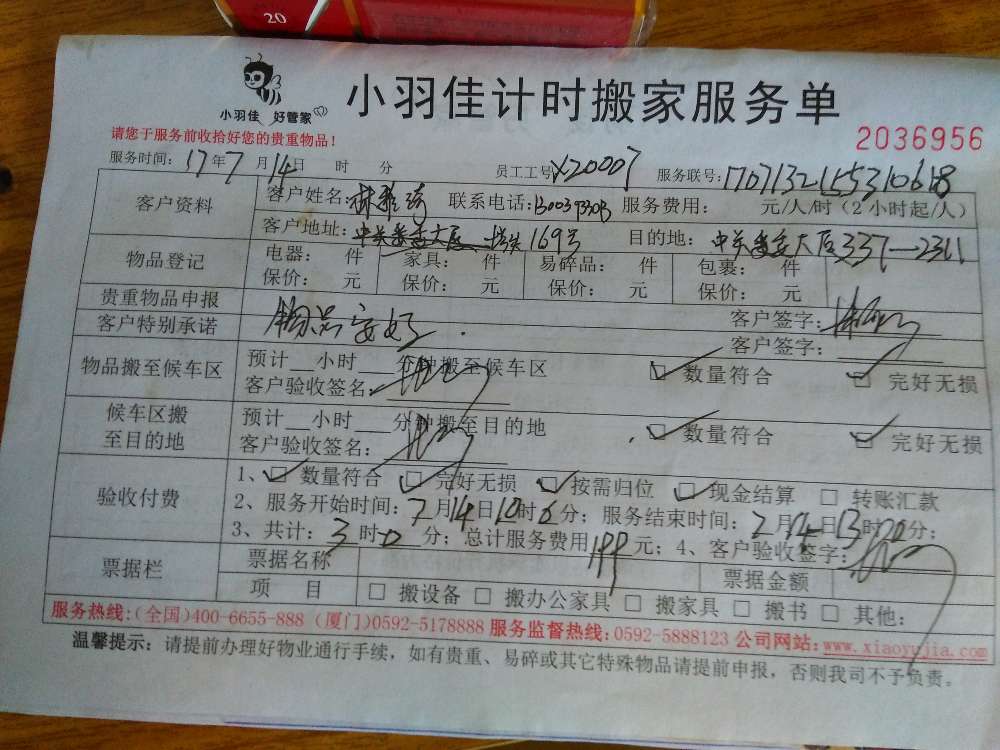 20
小羽佳 好管家
小羽佳计时搬家服务单
请您于服务前收拾好您的贵重物品!
2036956
服务时间: 17年7月14日 时 分 员工工号X20007 服务联号:
客户资料 客户姓名: 联系电话: 服务费用: 元/人/时(2小时起/人)
客户地址: 169号 目的地: 337-2311
物品登记 电器: 件 家具: 件 易碎品: 件 包裹: 件
保价: 元 保价: 元 保价: 元 保价: 元
贵重物品申报 客户签字:
客户特别承诺 物品安好. 客户签字:
物品搬至候车区 预计__小时___分钟搬至候车区 数量符合 完好无损
客户验收签名:
候车区搬至目的地 预计__小时___分钟搬至目的地 数量符合 完好无损
客户验收签名:
验收付费 1、 数量符合 完好无损 按需归位 现金结算 转账汇款
2、服务开始时间: 7月14日10时 分; 服务结束时间: 7月14日13时 分;
3、共计: 3时0分; 总计服务费用199元; 4、客户验收签字:
票据栏 票据名称 票据金额
项 目 搬设备 搬办公家具 搬家具 搬书 其他:
服务热线:(全国)400-6655-888 (厦门)0592-5178888 服务监督热线:0592-5888123 公司网站:www.xiaoyujia.com
温馨提示: 请提前办理好物业通行手续, 如有贵重、易碎或其它特殊物品请提前申报, 否则我司不予负责。